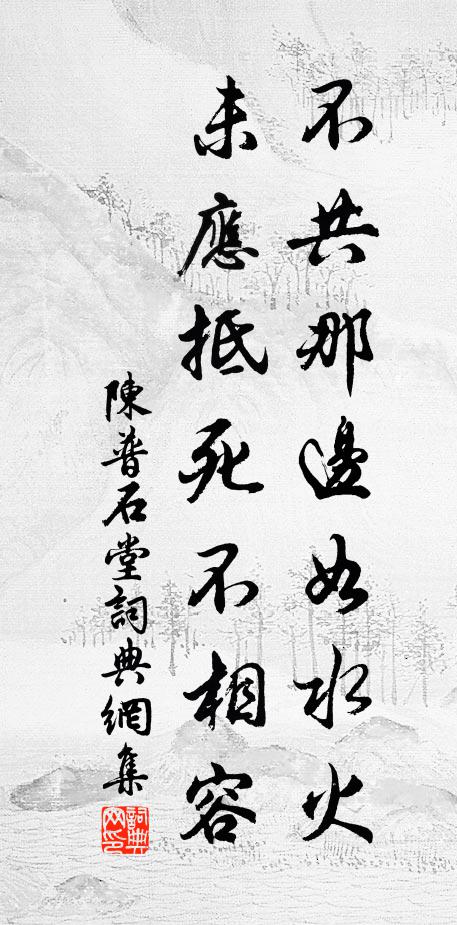 不共那邊如水火
未應抵死不相容
陳普石堂詞典網集
詞典網印